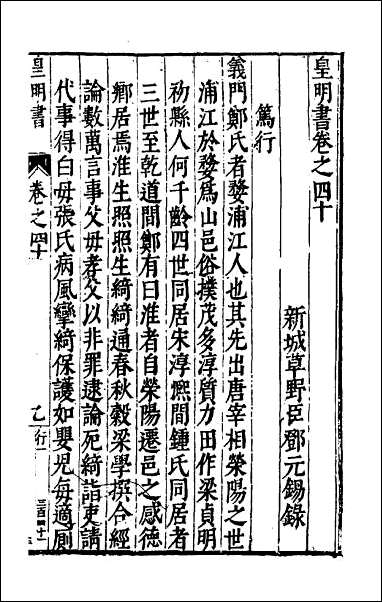 皇明書卷之四十
新城草野臣鄧元錫錄
篤行
義門鄭氏者婺浦江人也其先出唐宰相榮陽之世
浦江於婺爲山邑俗撲茂多淳質力田作梁貞明
初縣人何千齡四世同居宋淳熈間鍾氏同居者
三世至乾道間鄭有曰淮者自榮陽遷邑之感德
鄉居焉淮生照照生綺綺通春秋穀梁學撰合經
論數萬言事父毋孝父以非罪逮論死綺詣吏請
代事得白毋張氏病風攣綺保護如嬰児每適厠
皇明書
卷之四十